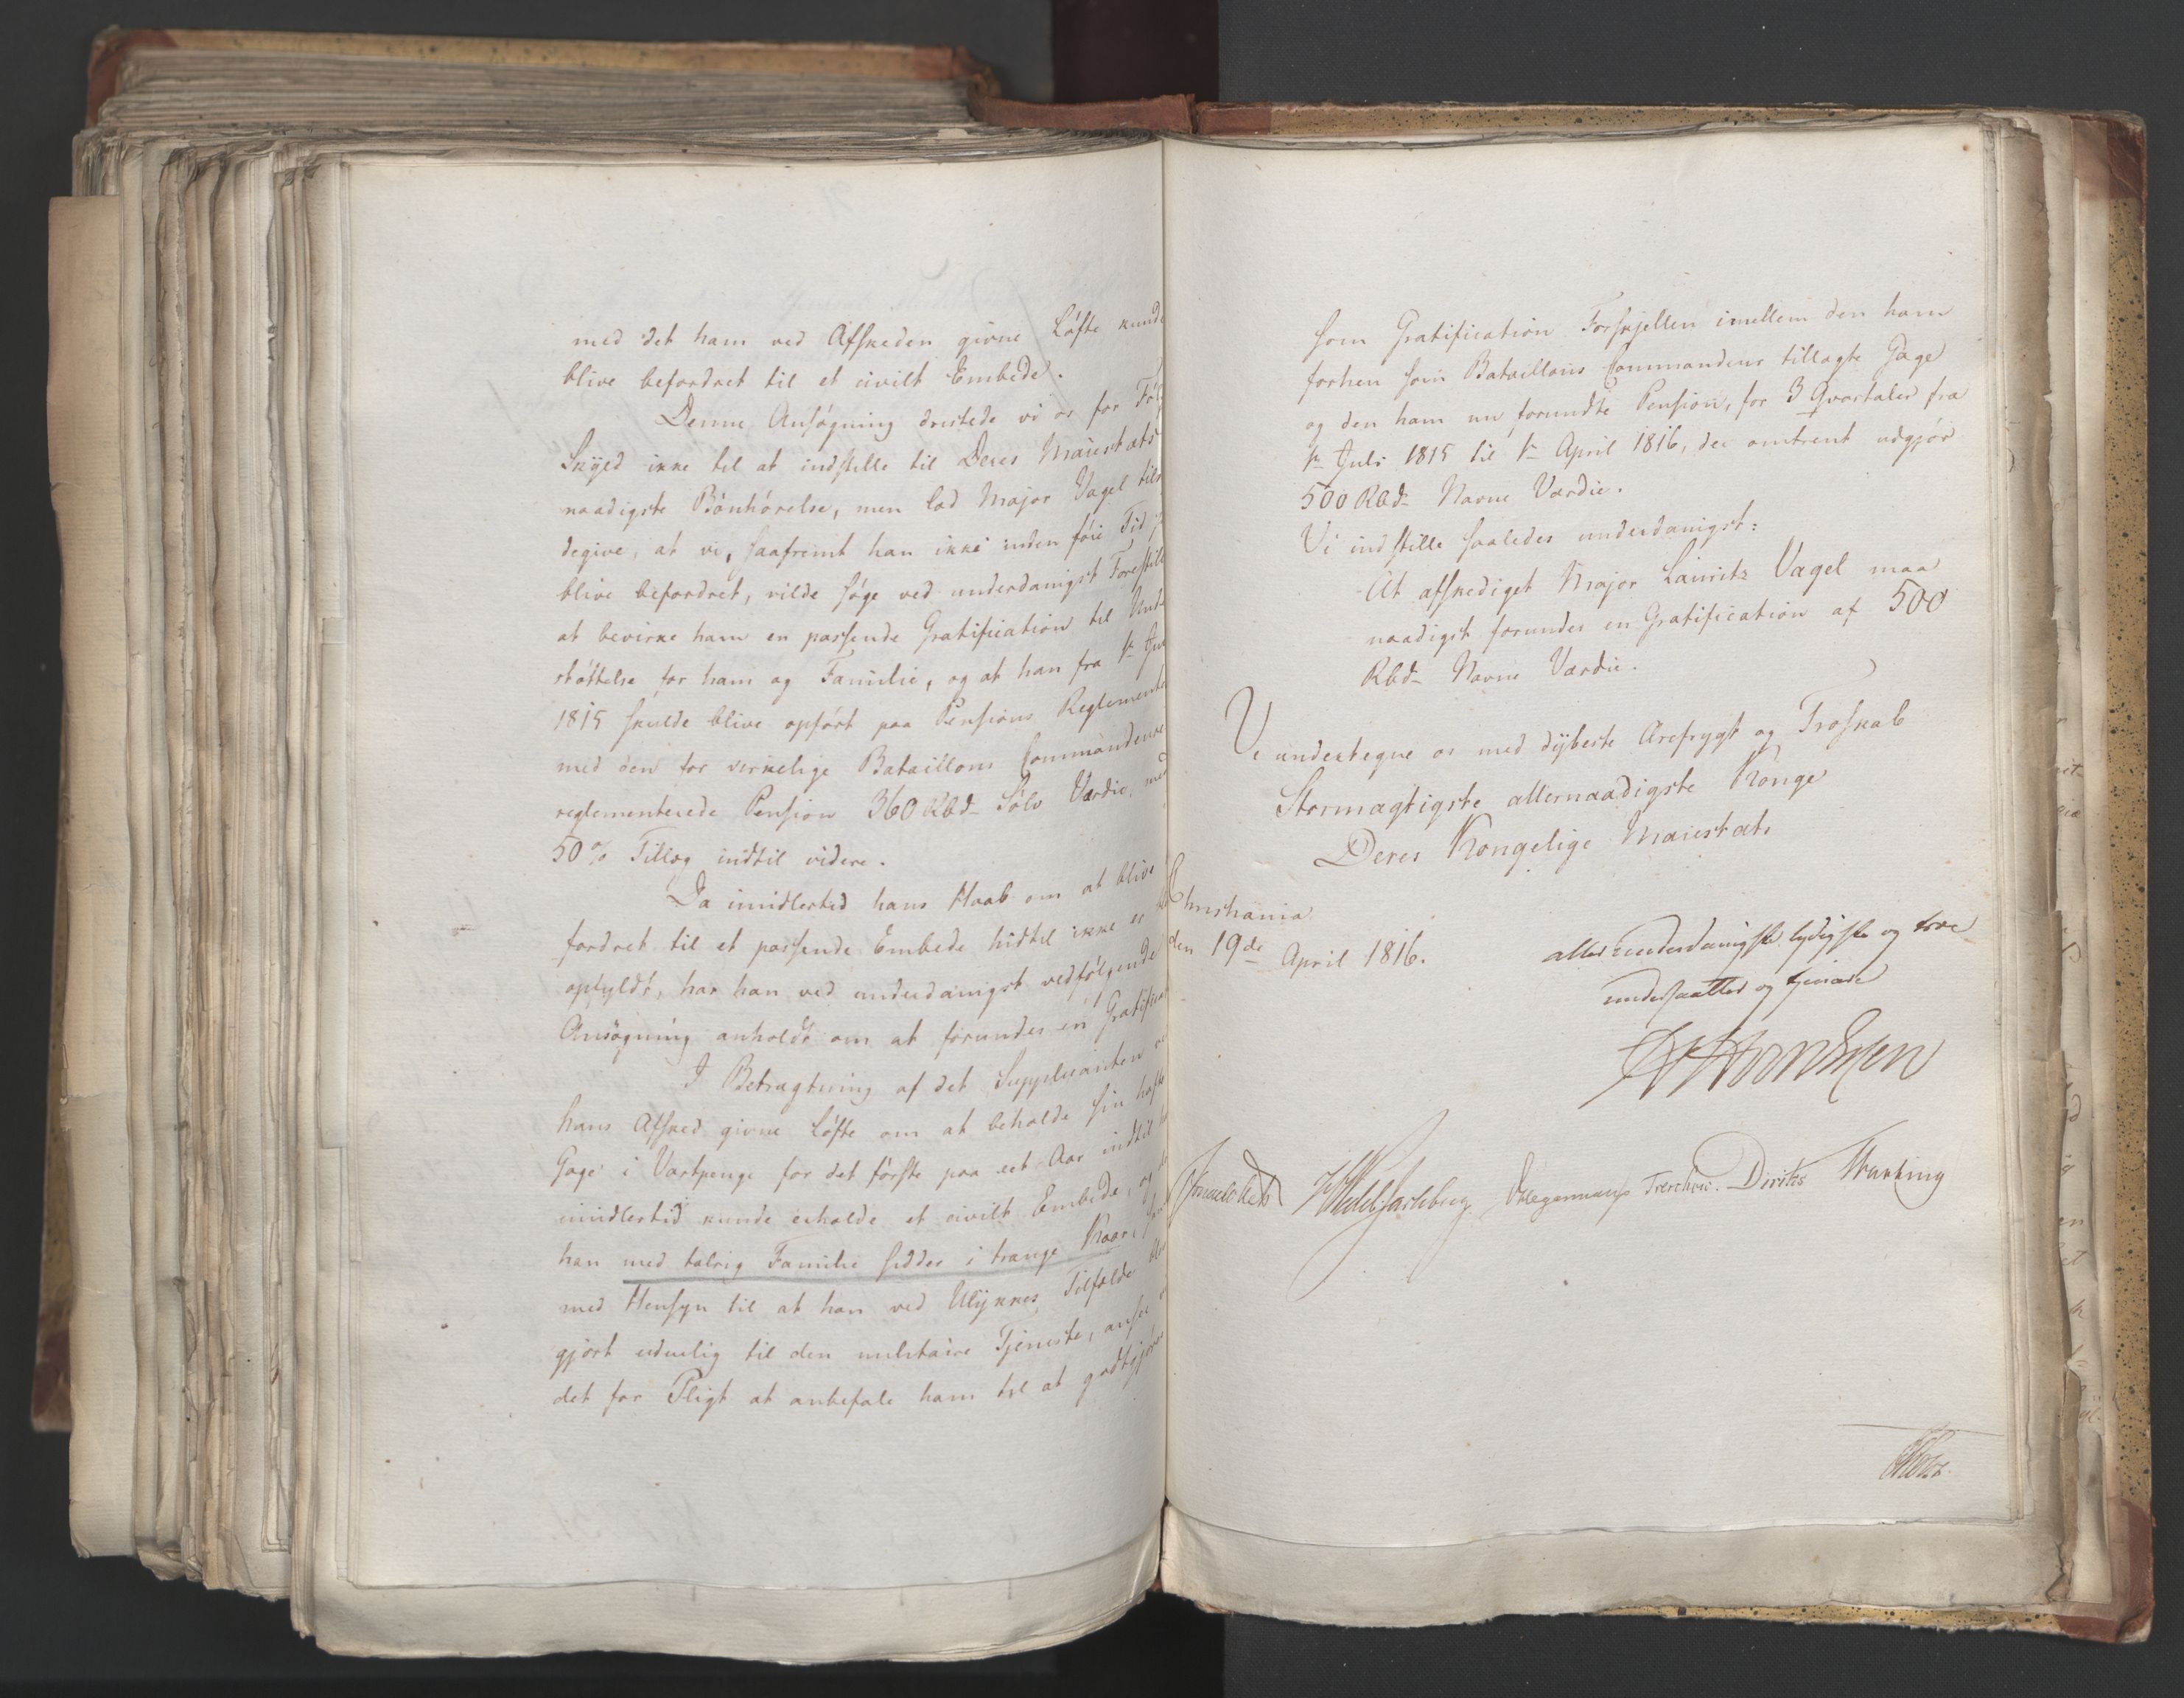 med det ham ved Afskeden givne Løfte kunde
blive befordret til et civilt Embede.
Denne Ansøgning dristede vi os for
Skyld ikke til at indstille til Deres Maiestæts
naadigste Bønhørelse, men lod Major Vagel
degive, at vi, saafremt han ikke inden føie Tid
blive befordret, vilde søge ved underdanigst
at bevirke ham en passende Gratification til
støttelse for ham og Familie, og at han fra 1te
1815 skulde blive opført paa Pensions Reglementet
med den for virkelige Bataillons Commandeurer
reglementerede Pension 360 Rbd Sølv Værdie, med
50% Tillæg indtil videre.
Da imidlertid hans Haab om at blive
fordret til et passende Embede hidtil ikke er
opfyldt, har han ved underdanigst vedfølgende
Ansøgning anholdt om at forundes en
I Betragtning af det Supplicanten
hans Afsked givne Løfte om at beholde sin
Gage i Vartpenge for det første paa eet Aar indtil
imidlertid kunde erholde et civilt Embede, og
han med talrig Familie sidder i trange Kaar,
med Hensyn til at han ved Ulykkes Tilfælde
gjort uduelig til den militaire Tjeneste, ansee
det for Pligt at anbefale ham til at godtgjøres
som Gratification Forskjellen imellem den ham
forhen som Bataillons Commandeur tillagte Gage
og den ham nu forundte Pension, for 3 Qvartaler fra
1te Juli 1815 til 1te April 1816, der omtrent udgjør
500 Rbd Navne Værdie.
Vi indstille saaledes underdanigst:
At afskediget Major Lauritz Vagel maa
naadigst forundes en Gratification af 500
Rbd Navne Værdie.
Vi undertegne os med dybeste Ærefrygt og Troskab
Stormægtigste allernaadigste Konge
Deres Kongelige Maiestæts
Christiania
den 19de April 1816.
allerunderdanigste lydigste og troe
undersaatter og tjenere
Sommerhielm HWedel Jarlsberg Hegermann Treschow. Diriks Thaning
Holst